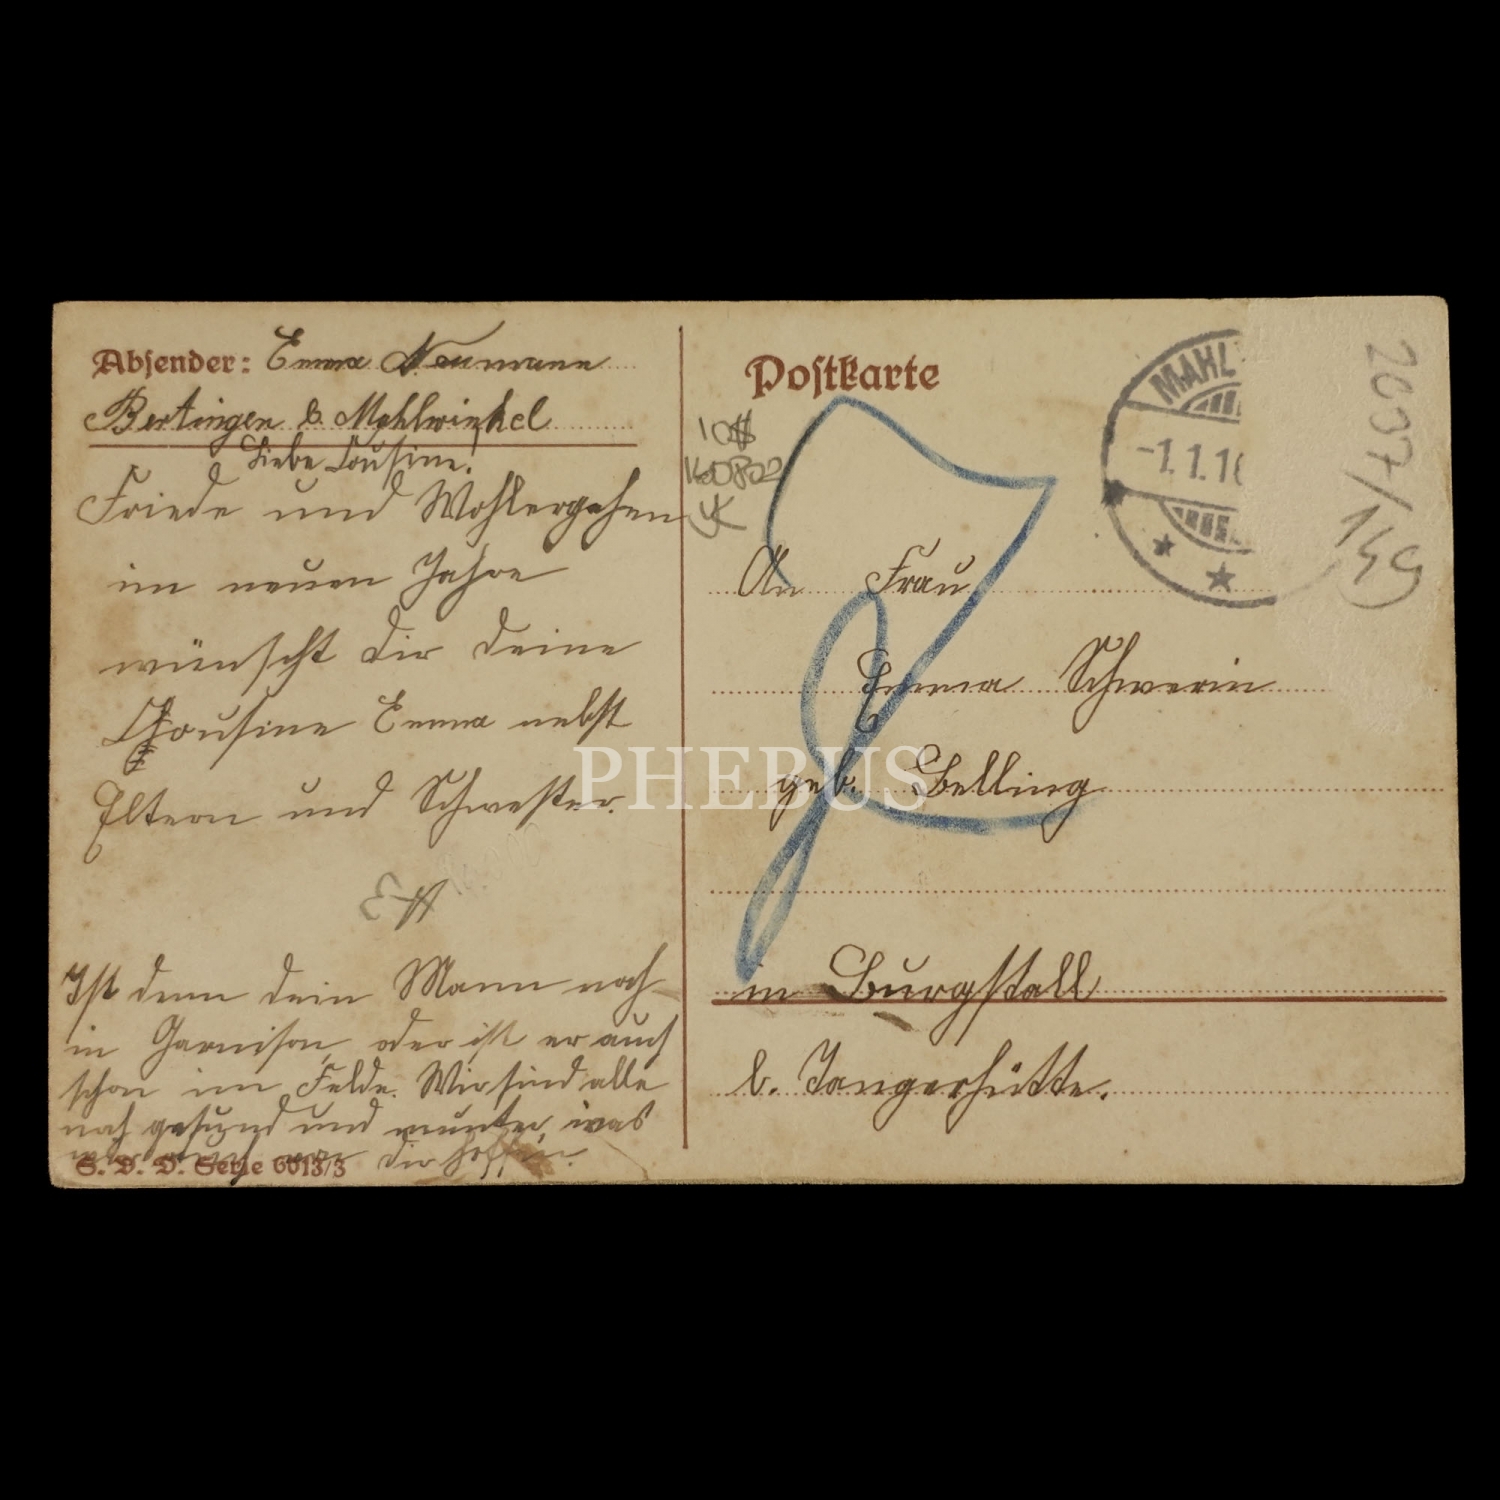 Absender: Emma Neumann
Bertingen b. Mahlwinkel
Liebe Cousine!
Friede und Wohlergehen
im neuen Jahre
wünscht dir deine
Cousine Emma nebst
Eltern und Schwester.
Ist denn dein Mann noch
in Garnison, oder ist er auch
schon im Felde. Wir sind alle
noch gesund und munter, was
wir auch von dir hoffen.
S. D. D. Serie 6013/3
Postkarte
MAHL
-1.1.16
2097/149
10$
An Frau
Emma Schwerin
geb. Belling
in Burgstall
b. Tangerhütte.
PHEBUS